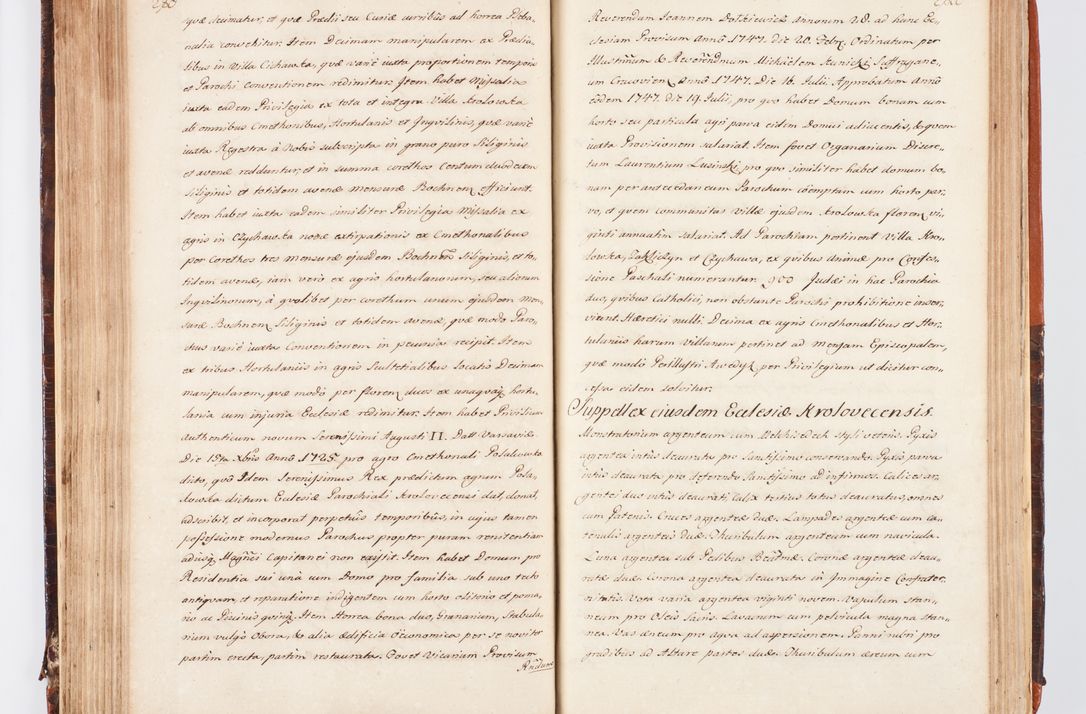 quæ decimatur, et quæ Prædii seu Curiæ curribus ad horrea Pleba„
nalia convehitur. Item Decimam manipularem ex Prædia„
libus in Villa Cichawka, quæ varie iuxta proportionem temporis
et Parochi Conventionem redimitur. Item habet Missalia
iuxta eadem Privilegia ex tota et integra Villa Krolowka
ab omnibus Cmethonibus, Hortulanis et Inquilinis, quæ varie
iuxta Regestra à Nobis subscripta in grano puro Siliginis
et avenæ redduntur, et in summa corethos Centum duodecem
Siliginis et totidem avenæ mensuræ Bochnen: efficiunt.
Item habet iuxta eadem similiter Privilegia Missalia ex
agris in Czychawka novæ extirpationis ex Cmethonalibus
per Corethos tres mensuræ ejusdem Bochnen: Siliginis, et to„
tidem avenæ, tam vero ex agris hortulanorum, seu aliorum
Inquilinorum, à quolibet per corethum unum ejusdem Men„
suræ Bochnen: Siliginis et totidem avenæ, quæ modo Paro„
chus varie iuxta Conventionem in pecunia recipit. Item
ex tribus Hortulaniis in agris Scultetialibus locatis Decimam
manipularem, quæ modo per floren: duos ex unaquaq hortu„
lania cum injuria Ecclesiæ redimitur. Item habet Privilium
authenticum novum Serenissimi Augusti II. Datt Varsaviæ
Die 15ta Xbris Anno 1725. pro agro Cmethonali Polakowka
dicto, quod Idem Serenissimus Rex prædictum agrum Pola„
kowka dictum Ecclesiæ Parochiali Krolovecensi dat, donat,
adscribit, et incorporat perpetuis temporibus, in cujus tamen
possessione modernus Parochus propter puram renitentiam
adusq Magnifici Capitanei non existit. Item habet Domum pro
Residentia sui unà cum Domo pro familia sub uno tecto
antiquam, et reparatione indigentem cum horto olitorio et poma„
rio ac Piscinis quinq. Item Horrea bona duo, Granarium, Stabula„
rium vulgo Obora, & alia ædificia œconomica per se noviter
partim erecta, partim restaurata. Fovet Vicarium Provisum
Rndum
Reverendum Joannem Dolkiewicz annorum 28. ad hanc Ec„
clesiam Provisum Anno 1747. die 20. Febr: Ordinatum per
Illustrissimum & Reverendissimum Michaelem Kunicki Suffragane„
um Cracovien: Anno 1747. Die 16. Julii. Approbatum Anno
eodem 1747. die 19. Julii, pro quo habet Domum bonam cum
horto seu particula agri parva eidem Domui adiacentis, & quem
iuxta Provisionem salariat. Item fovet Organarium Discre„
tum Laurentium Lusinski pro quo similiter habet domum bo„
nam per antecedaneum Parochum coëmptam cum horto par„
vo, et quem communitas villæ ejusdem Krolowka floren: vi„
ginti annuatim salariat. Ad Parochiam pertinent Villa Kro„
lowka, Zakliczyn et Czychawa, ex quibus animæ pro Confes„
sione Paschali numerantur 900 Judæi in hac Parochia
duo, quibus Catholici, non obstante Parochi prohibitione inser„
viunt. Hæretici nulli. Decima ex agris Cmethonalibus et Hor„
tulaniis harum Villarum pertinet ad Mensam Episcopalem,
quæ modo Perillustri per Privilegium ut dicitur con„
cessa eidem solvitur.
Suppellex ejusdem Ecclesiæ Krolovecensis.
Monstratorium argenteum cum Melchisedech styli veteris. Pyxis
argentea intus deaurata pro Sanctissimo conservando. Pyxis parva
intus deaurata pro deferendo Sanctissimo ad infirmos. Calices ar„
gentei duo intus deaurati, Calix tertius totus deauratus, omnes
cum Patenis. Cruces argenteæ duæ. Lampades argenteæ cum ca„
tenulis argenteis duæ. Thuribulum argenteum cum navicula.
Luna argentea sub Pedibus Beatmæ. Coronæ argenteæ deau„
ratæ duæ. Corona argentea deaurata in Immagine Confrater„
nitatis. Vota varia argentea viginti novem. Vasculum stan„
neum pro Oleis Sacris. Lavarum cum pelvicula magna stan„
nea. Vas æneum pro aqua ad aspersionem. Panni rubri pro
gradibus ad Altare partes duæ. Thuribulum æreum cum